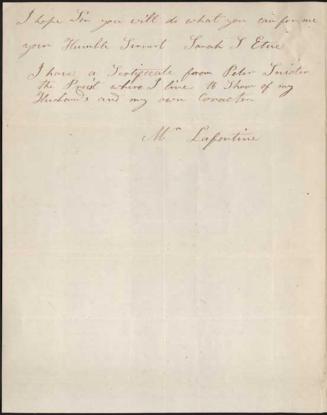 I hope Sir you will do what you can for me
your Humble Servant Sarah S Etue
I have a Sertificate from Peter
the Priest where I live to Show of my
Husband's and my own Caracter
Mrs Lafontine